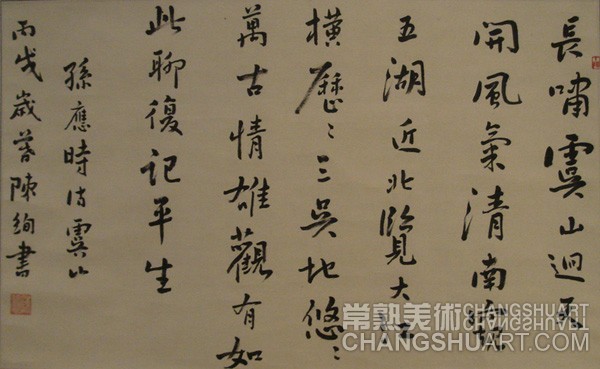 長嘯虞山迥天
開風氣清南瞻
五湖近北覽大江
橫歷〻三吳地悠〻
萬古情雄觀有如
此聊復記平生
孫應時诗虞山
丙戌歲暮陳絢書
常熟美術 CHANGSHUART
CHANGSHUART.COM